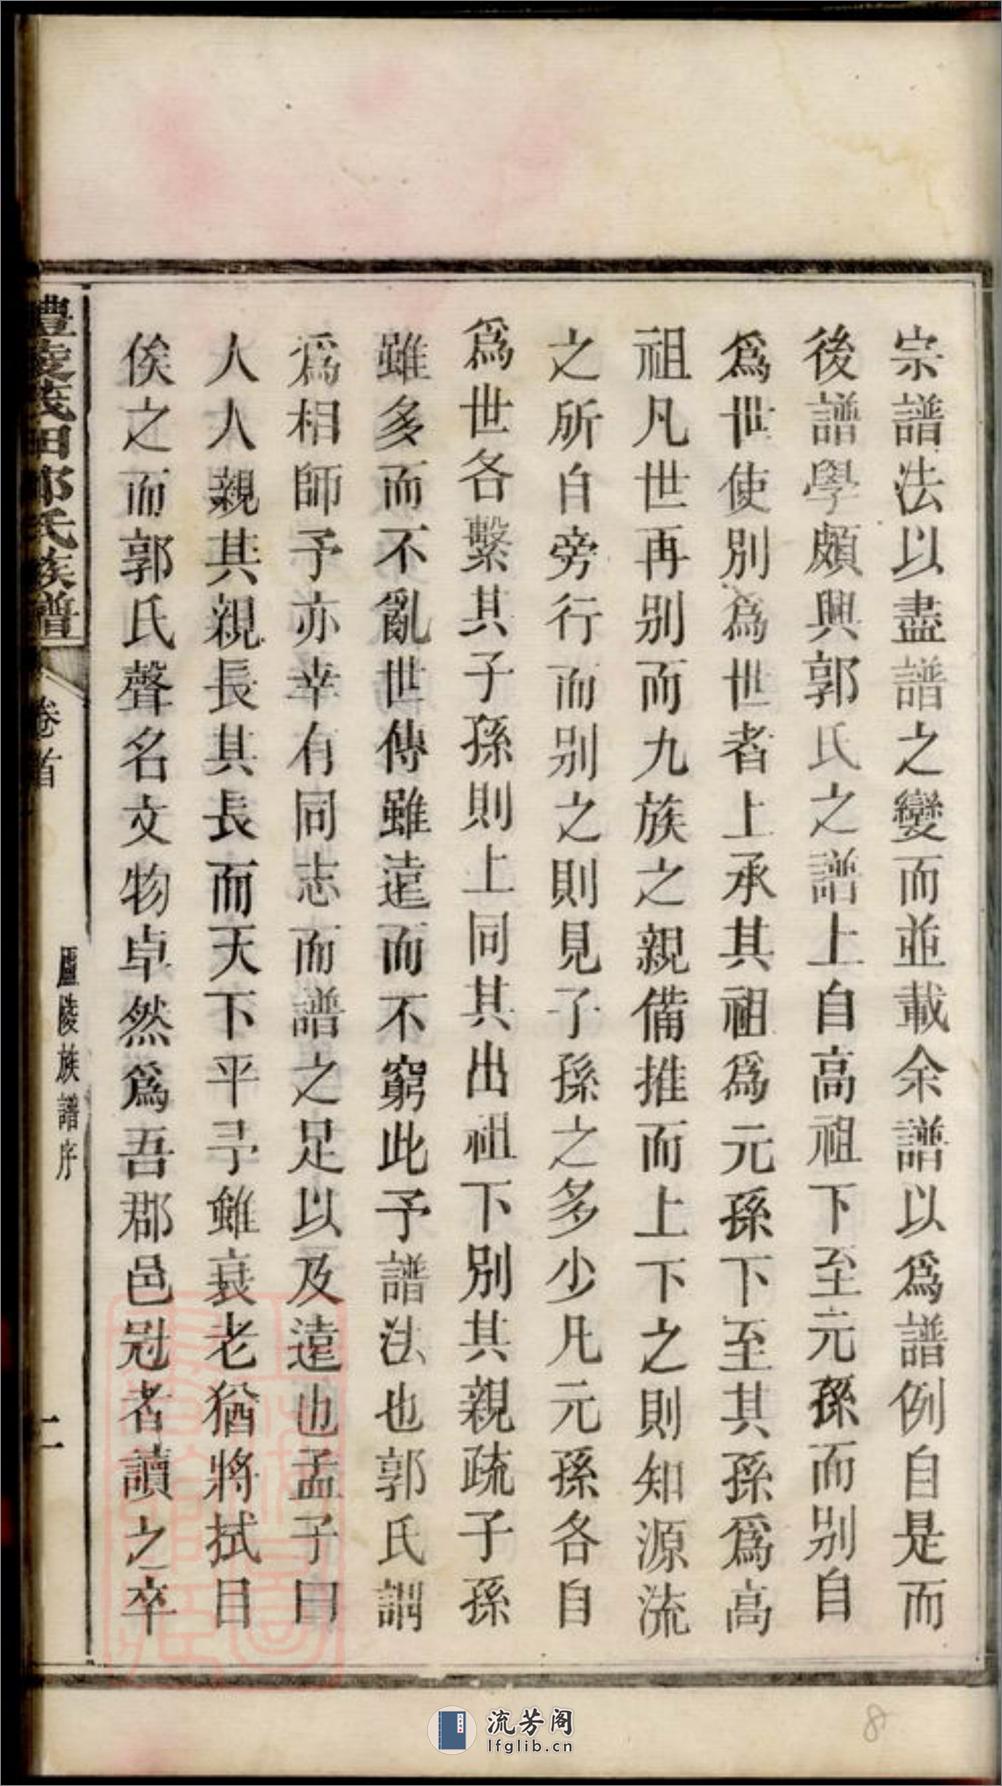 宗譜法以盡譜之變而並載余譜以爲譜例自是而
後譜學頗興郭氏之譜上自高祖下至元孫而别自
爲世使別爲世者上承其祖爲元孫下至其孫爲高
祖凡世再别而九族之親備推而上下之則知源流
之所自旁行而别之則見子孫之多少凡元孫各自
爲世各繫其子孫則上同其出祖下別其親疏子孫
雖多而不亂世傳雖遠而不窮此予譜法也郭氏謂
爲相師予亦幸有同志而譜之足以及遠也孟子曰
人人親其親長其長而天下平予雖衰老猶將拭目
俟之而郭氏聲名文物卓然爲吾郡邑冠者讀之卒
醴陵茂田郭氏族譜
卷首
廬陵族譜序
二
流芳阁
lfglib.cn
8